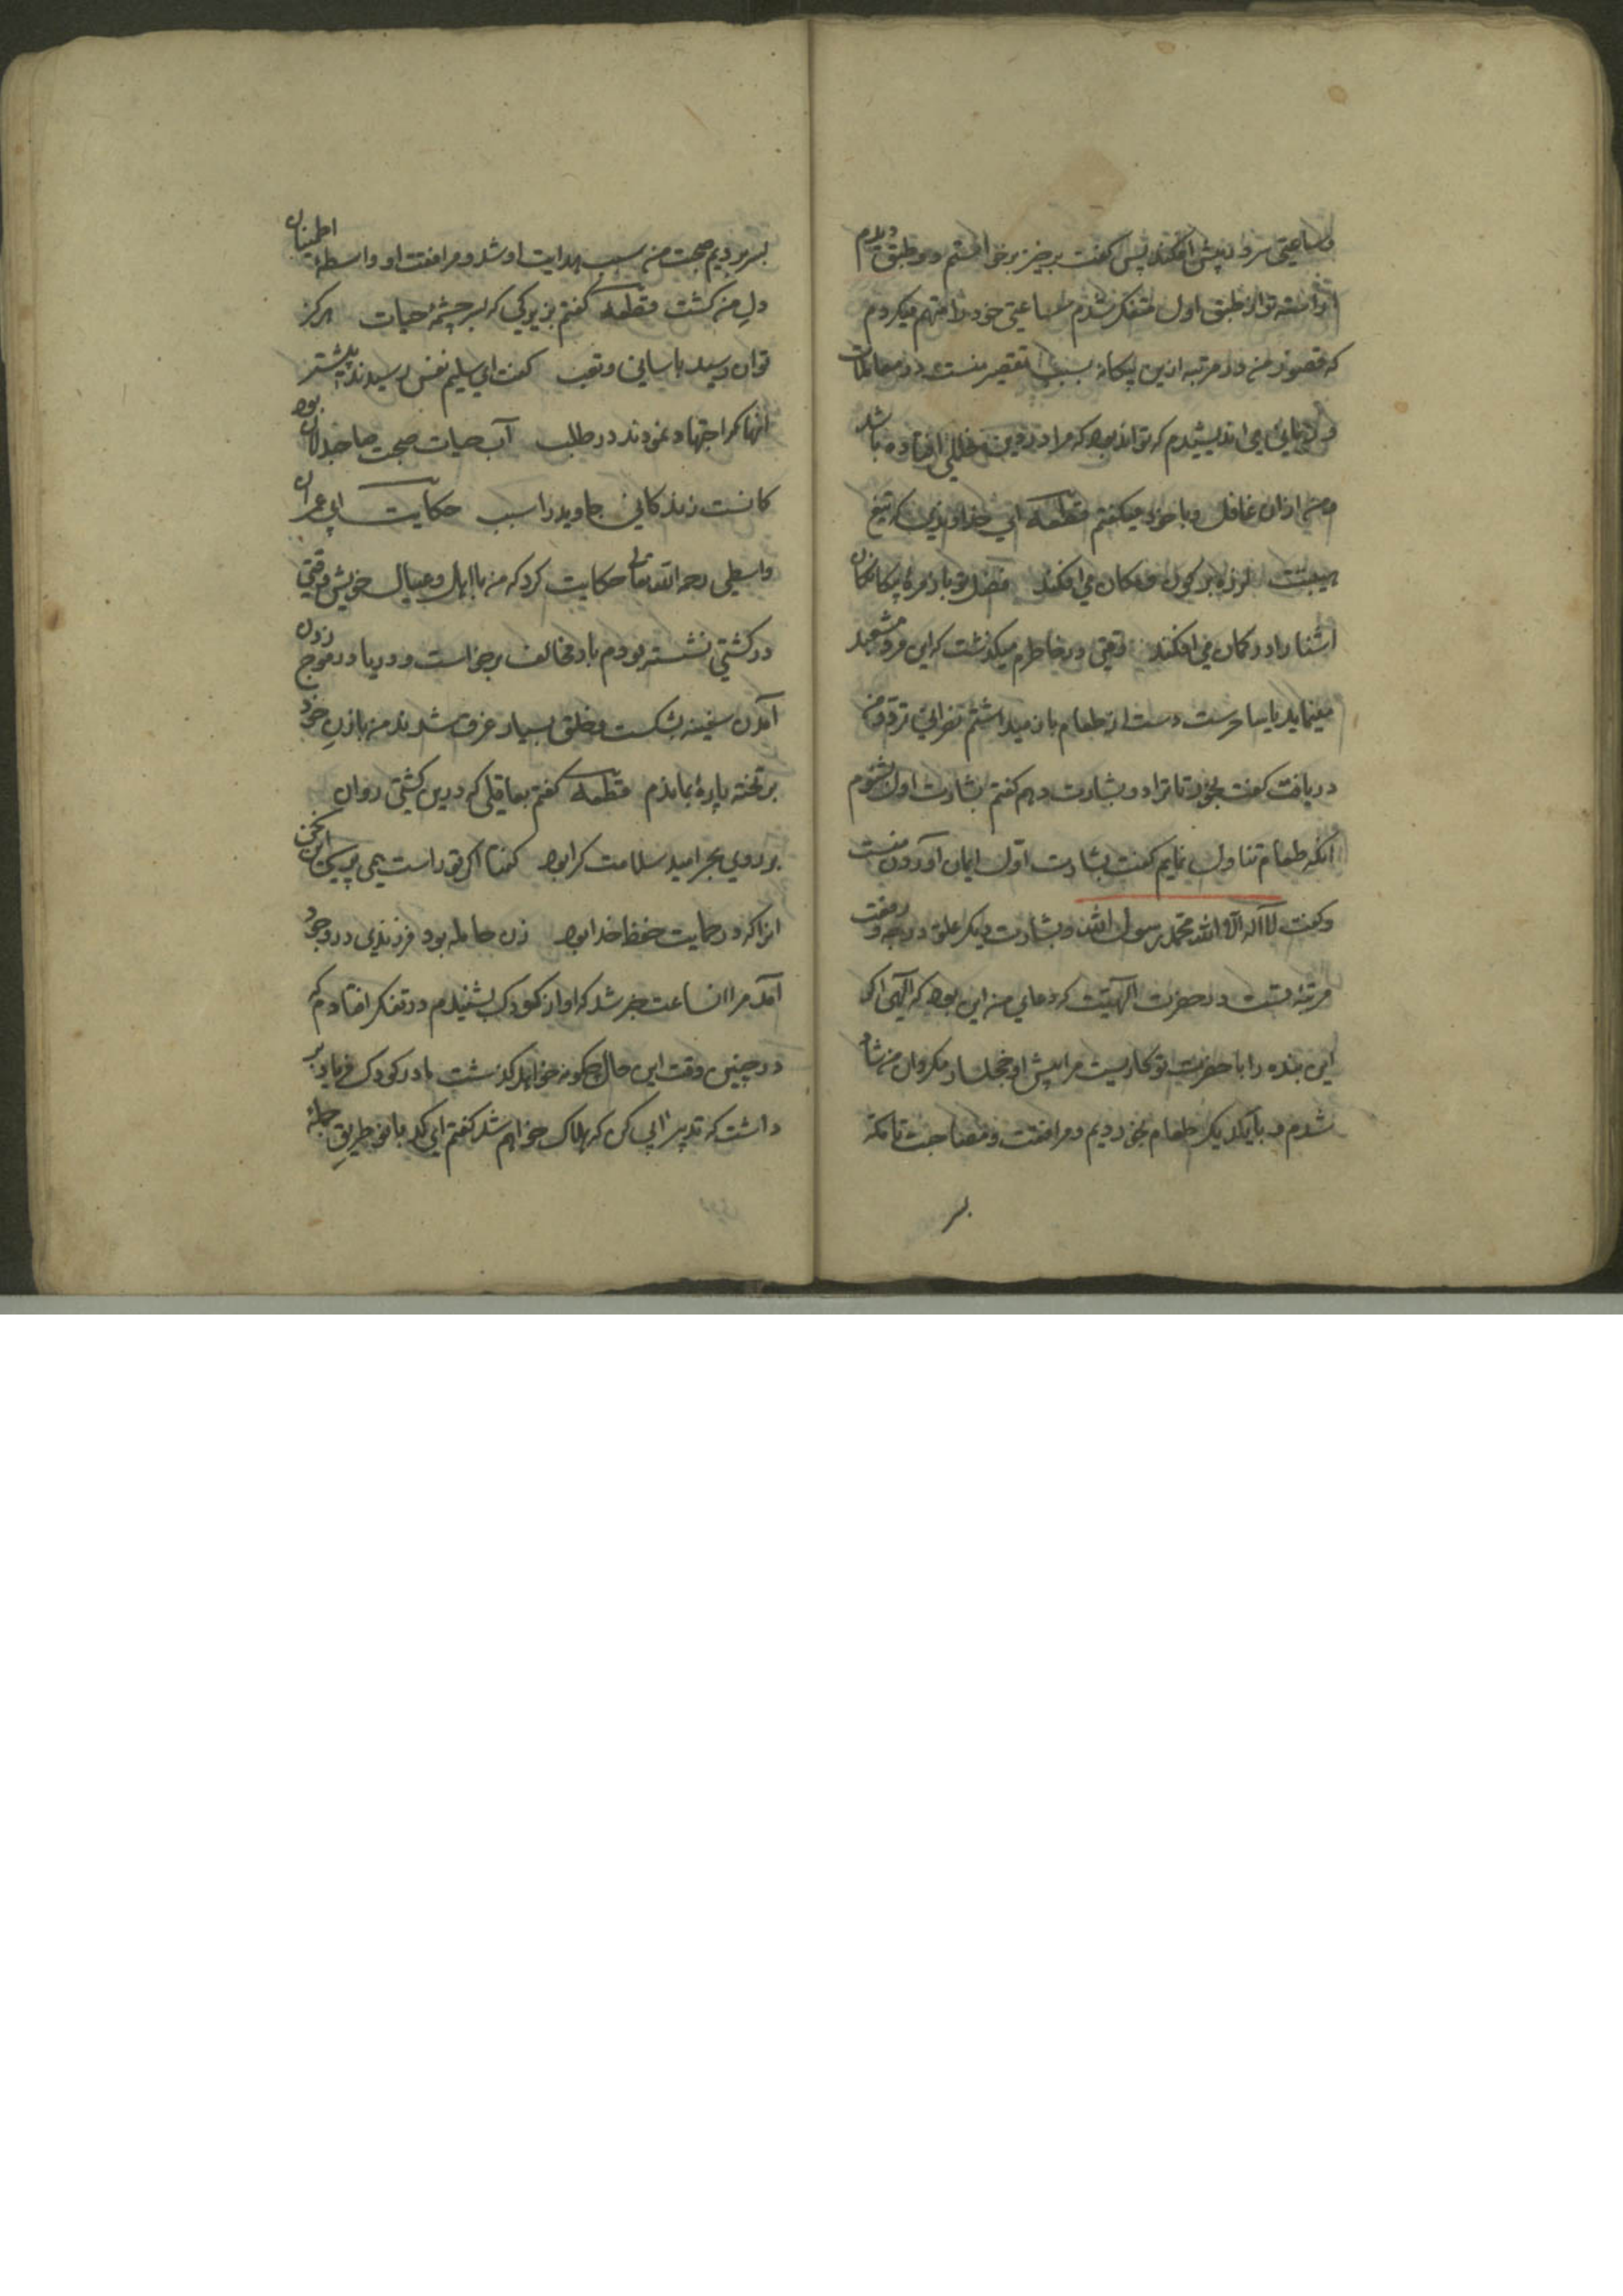 و ساعتی سر در پیش افکند پس گفت برخیز برخواستم دو طبق دیدم
آراسته تر از طبق اول متفکر شدم ساعتی خود را متهم میکردم
که قصور من در مرتبه ازین بیکانه بسبب تقصیر منست در معاملات
و زمانی می اندیشیدم که تواند بود که مرا در دین خللی افتاده باشد
و من ازان غافل و با خود میکفتم قطعه ای خداوندی که تیغ
هیبتت لرزه بر کون و مکان می افکند فضل تو با زمره بیکانکان
اشنا را در کمان می افکند وقتی در خاطرم میکذشت که این مرد مشعبد
مینماید یا ساحرست دست از طعام باز میداشتم نصرانی تردد من
دریافت کفت بخور تا ترا دو بشارت دهم کفتم بشارت اول بشنوم
انکه طعام تناول نمایم کفت بشارت اول ایمان آوردن منست
و کفت لا اله الا الله محمد رسول الله و بشارت دیکر علو درجه و رفعت
مرتبه تست در حضرت الهیت که دعای من این بود که الهی اکر
این بنده را با حضرت تو کاریست مرا پیش او خجل مکردان من شاد
شدم و با یکدیکر طعام بخوردیم و مرافقت و مصاحبت تا مکه
بسر
بسر بردیم صحبت من سبب هدایت او شد و مرافقت او واسطه اطمینان
دل من کشت قطعه کفتم بزیرکی که بسر چشمه حیات هرکز
توان رسید باسانی و تعب کفت ای سلیم نفس رسیدند پیشتر
آنها که اجتهاد نمودند در طلب آب حیات صحبت صاحبدلان بود
کانست زندکانی جاوید را سبب حکایت ابی عمران
واسطی رحمه الله تعالی حکایت کرد که من با اهل و عیال خویش وقتی
در کشتی نشسته بودم باد مخالف برخواست و دریا در موج زدن
آمدن سفینه بشکست و خلق بسیار غرق شدند من با زن خود
بر تخته پاره بماندم قطعه کفتم بعاقلی که درین کشتی روان
بر روی بحر امید سلامت کرا بود کفتا اکر تو راست همی پرسی این سخن
انرا که در حمایت حفظ خدا بود زن حامله بود فرزندی در وجود
آمد مرا انساعت خبر شد که اواز کودک بشنیدم در تفکر افتادم که
در چنین وقت این حال چکونه خواهد کذشت مادر کودک فریاد بر
داشت که تدبیر آبی کن که هلاک خواهم شد کفتم ای